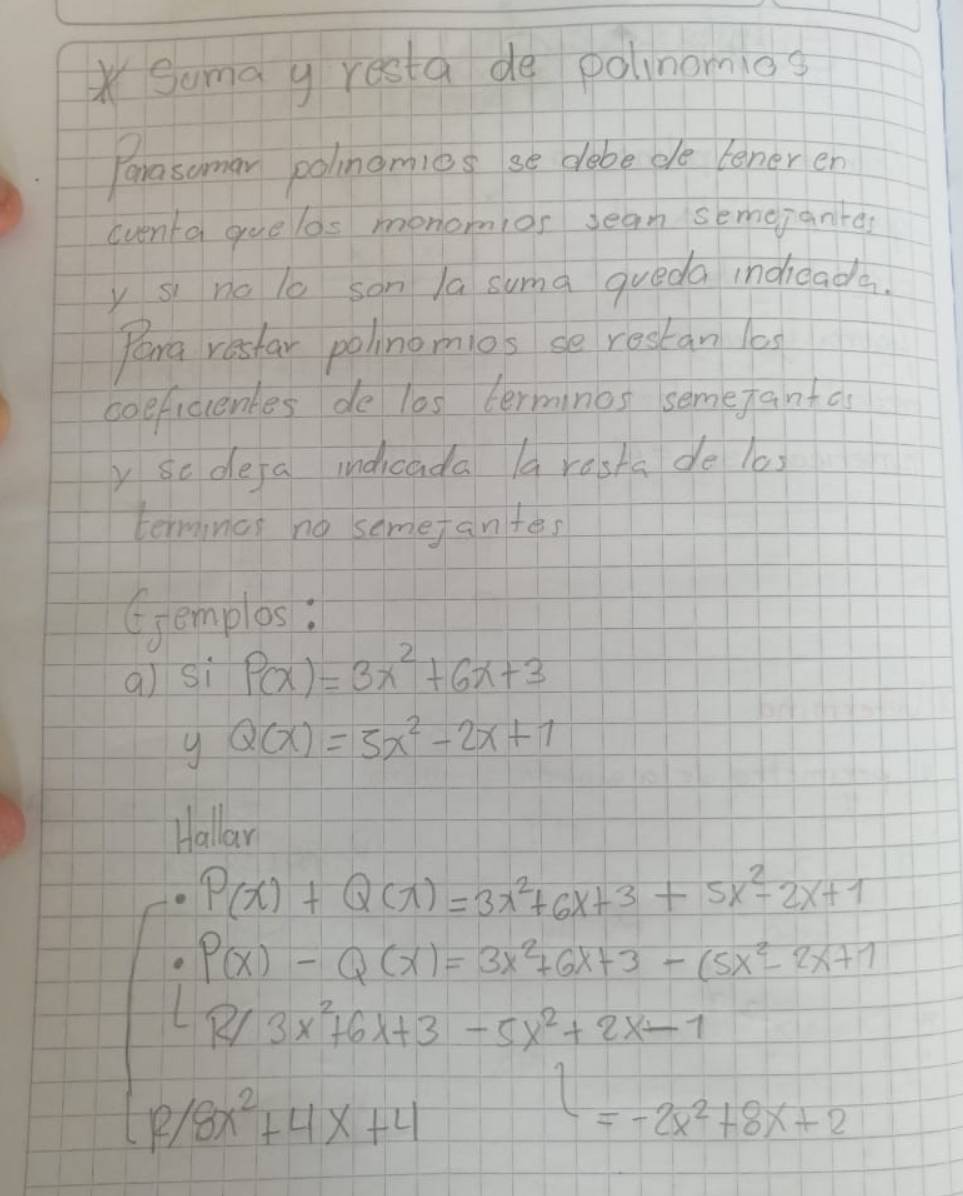 * Suma y resta de polinomios
Para sumar polinomios se debe de tener en
cuenta que los monomios sean semejantes
y si no lo son la suma queda indicada.
Para restar polinomios se restan los
coeficientes de los terminos semejantes
y se deja indicada la resta de los
terminos no semejantes
Ejemplos:
a) si P(x) = 3x² + 6x + 3
y Q(x) = 5x² - 2x + 1
Hallar
• P(x) + Q(x) = 3x² + 6x + 3 + 5x² - 2x + 1
• P(x) - Q(x) = 3x² + 6x + 3 - (5x² - 2x + 1
R/ 3x² + 6x + 3 - 5x² + 2x - 1
R/ 8x² + 4x + 4
= -2x² + 8x + 2